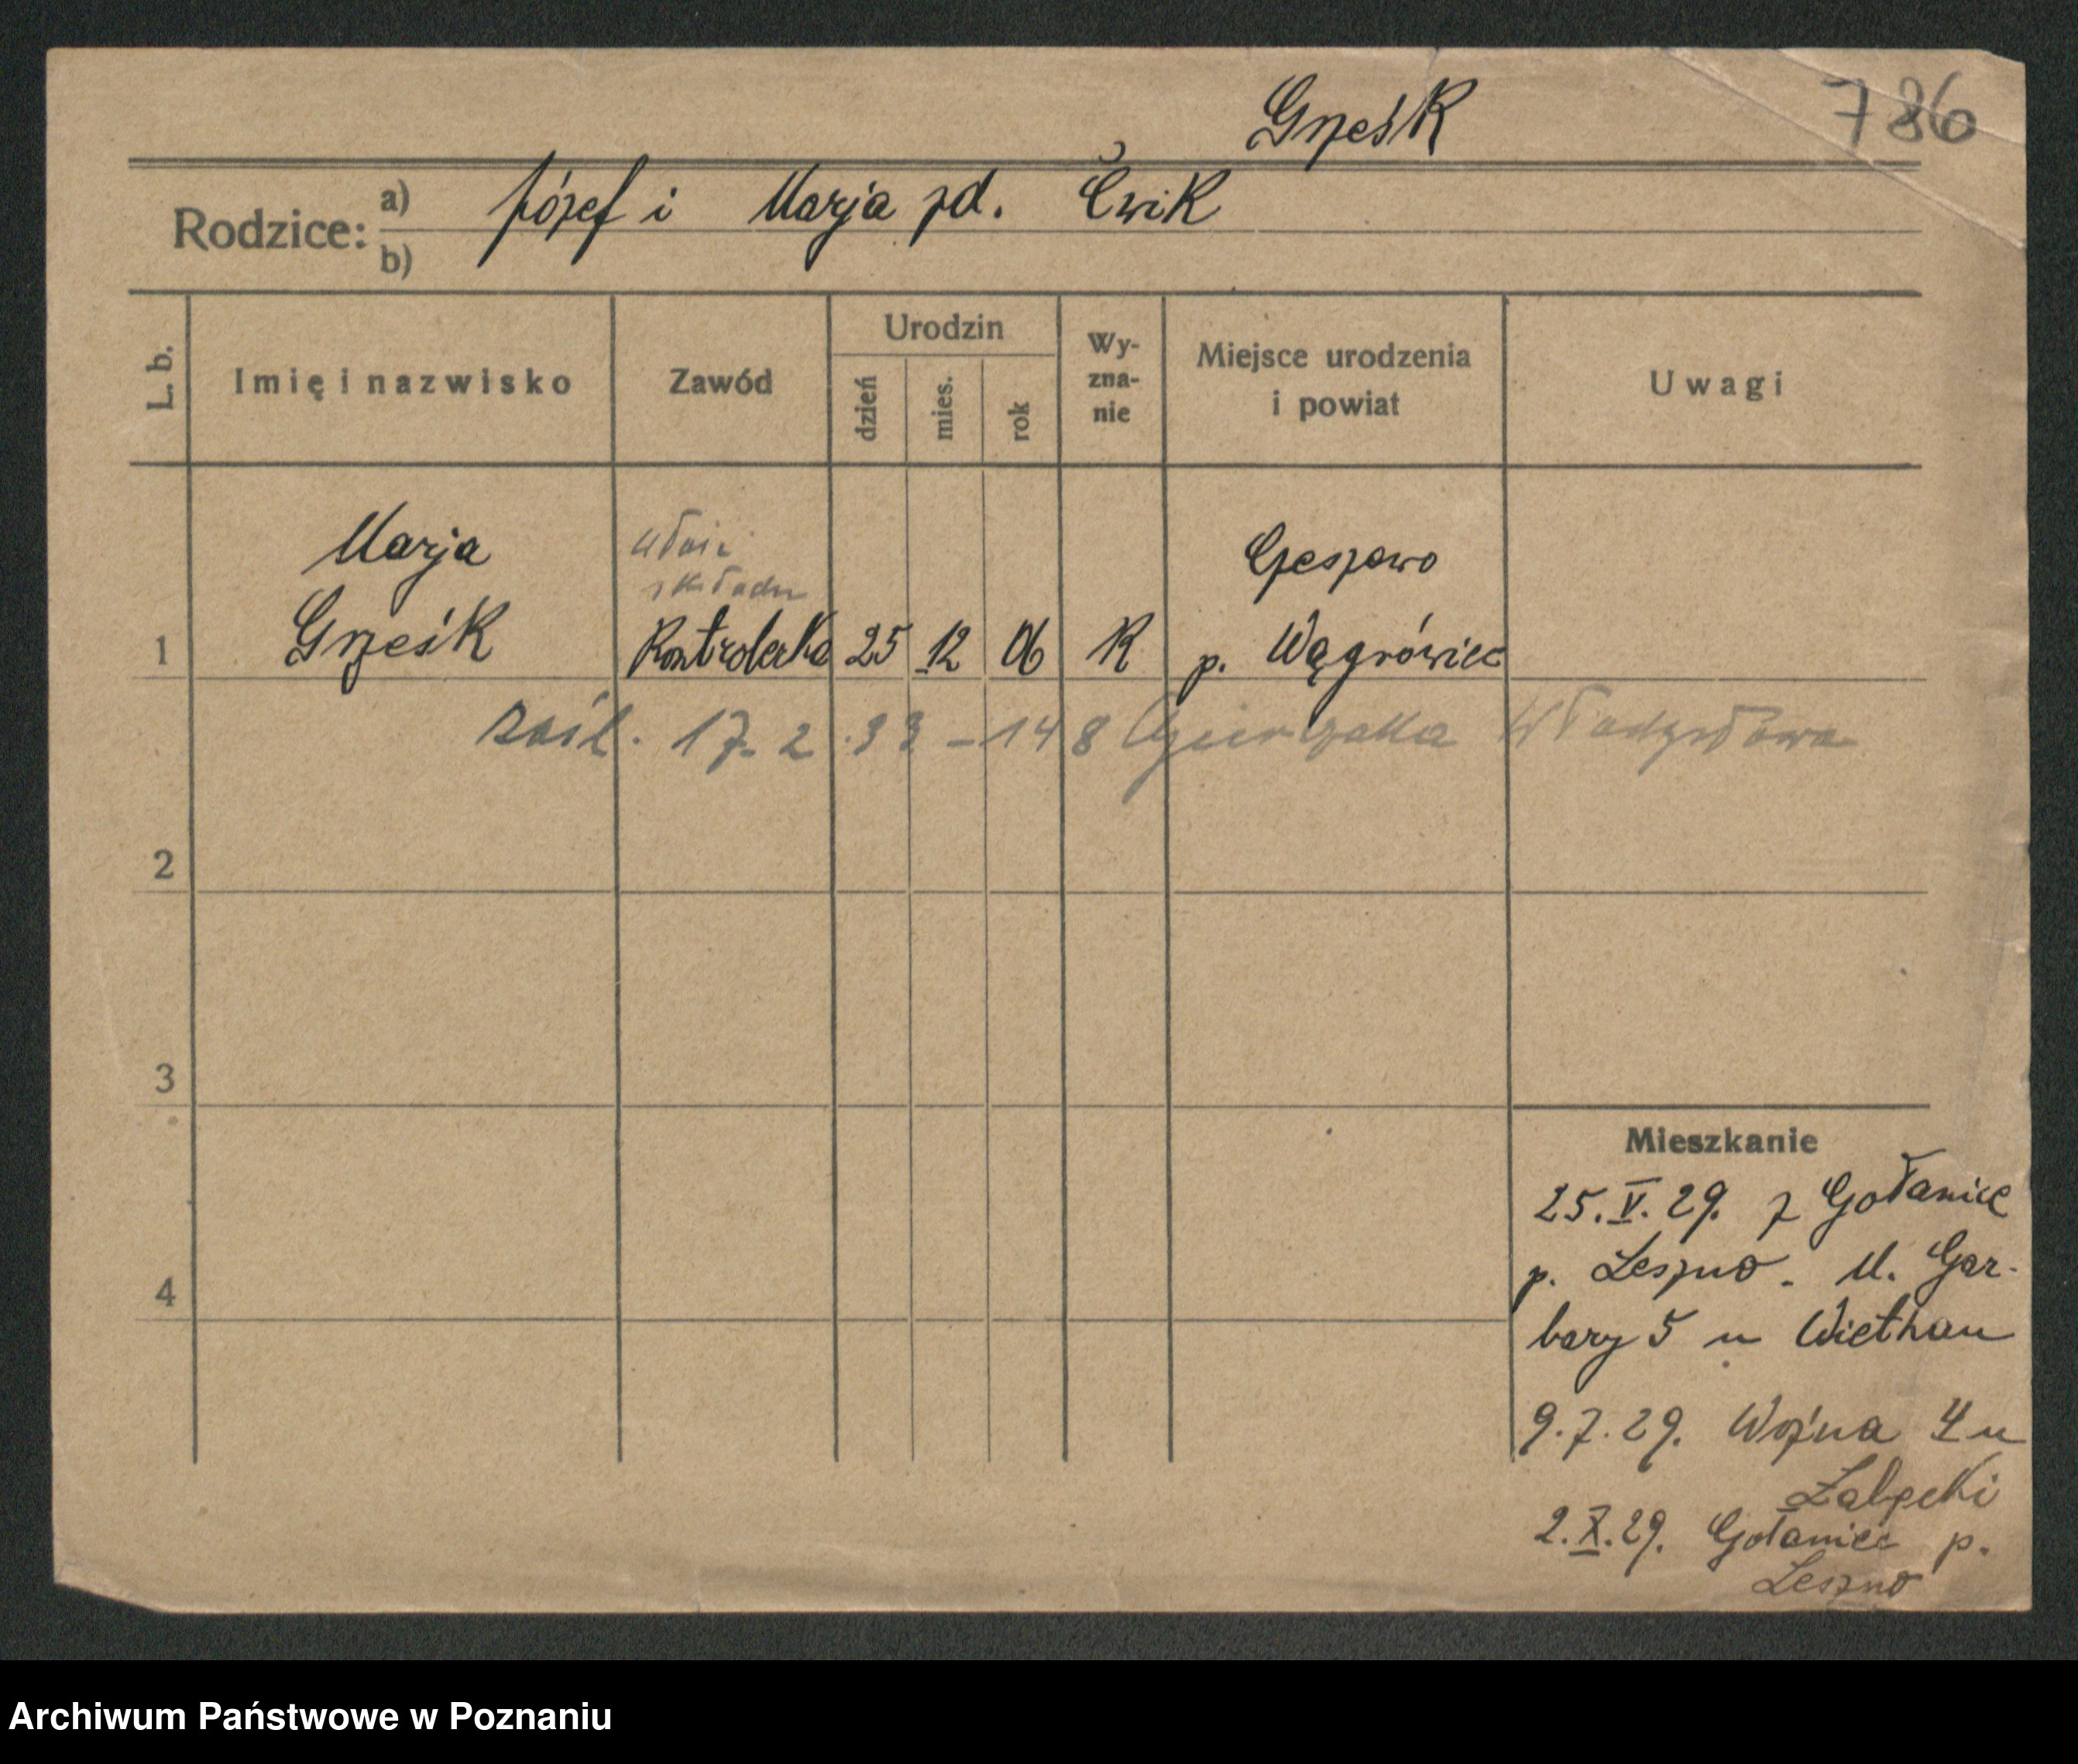 Grześk
786
Rodzice: a) Józef i Marja zd. Ćwik
b)
L. b.
Imię i nazwisko
Zawód
Urodzin
dzień
mies.
rok
Wy-
zna-
nie
Miejsce urodzenia
i powiat
Uwagi
Marja
składu
Czeszewo
1 Grześk Kontrolerka 25 12 06 K p. Wągrówiec
zaśl. 17. 2. 33 - 148
2
3
4
Mieszkanie
25.V.29. z Gołanice
p. Leszno. M. Gar-
bary 5 u Wiethan
9.7.29. Woźna 4 u
Zabęcki
2.X.29. Gołanice p.
Leszno
Archiwum Państwowe w Poznaniu